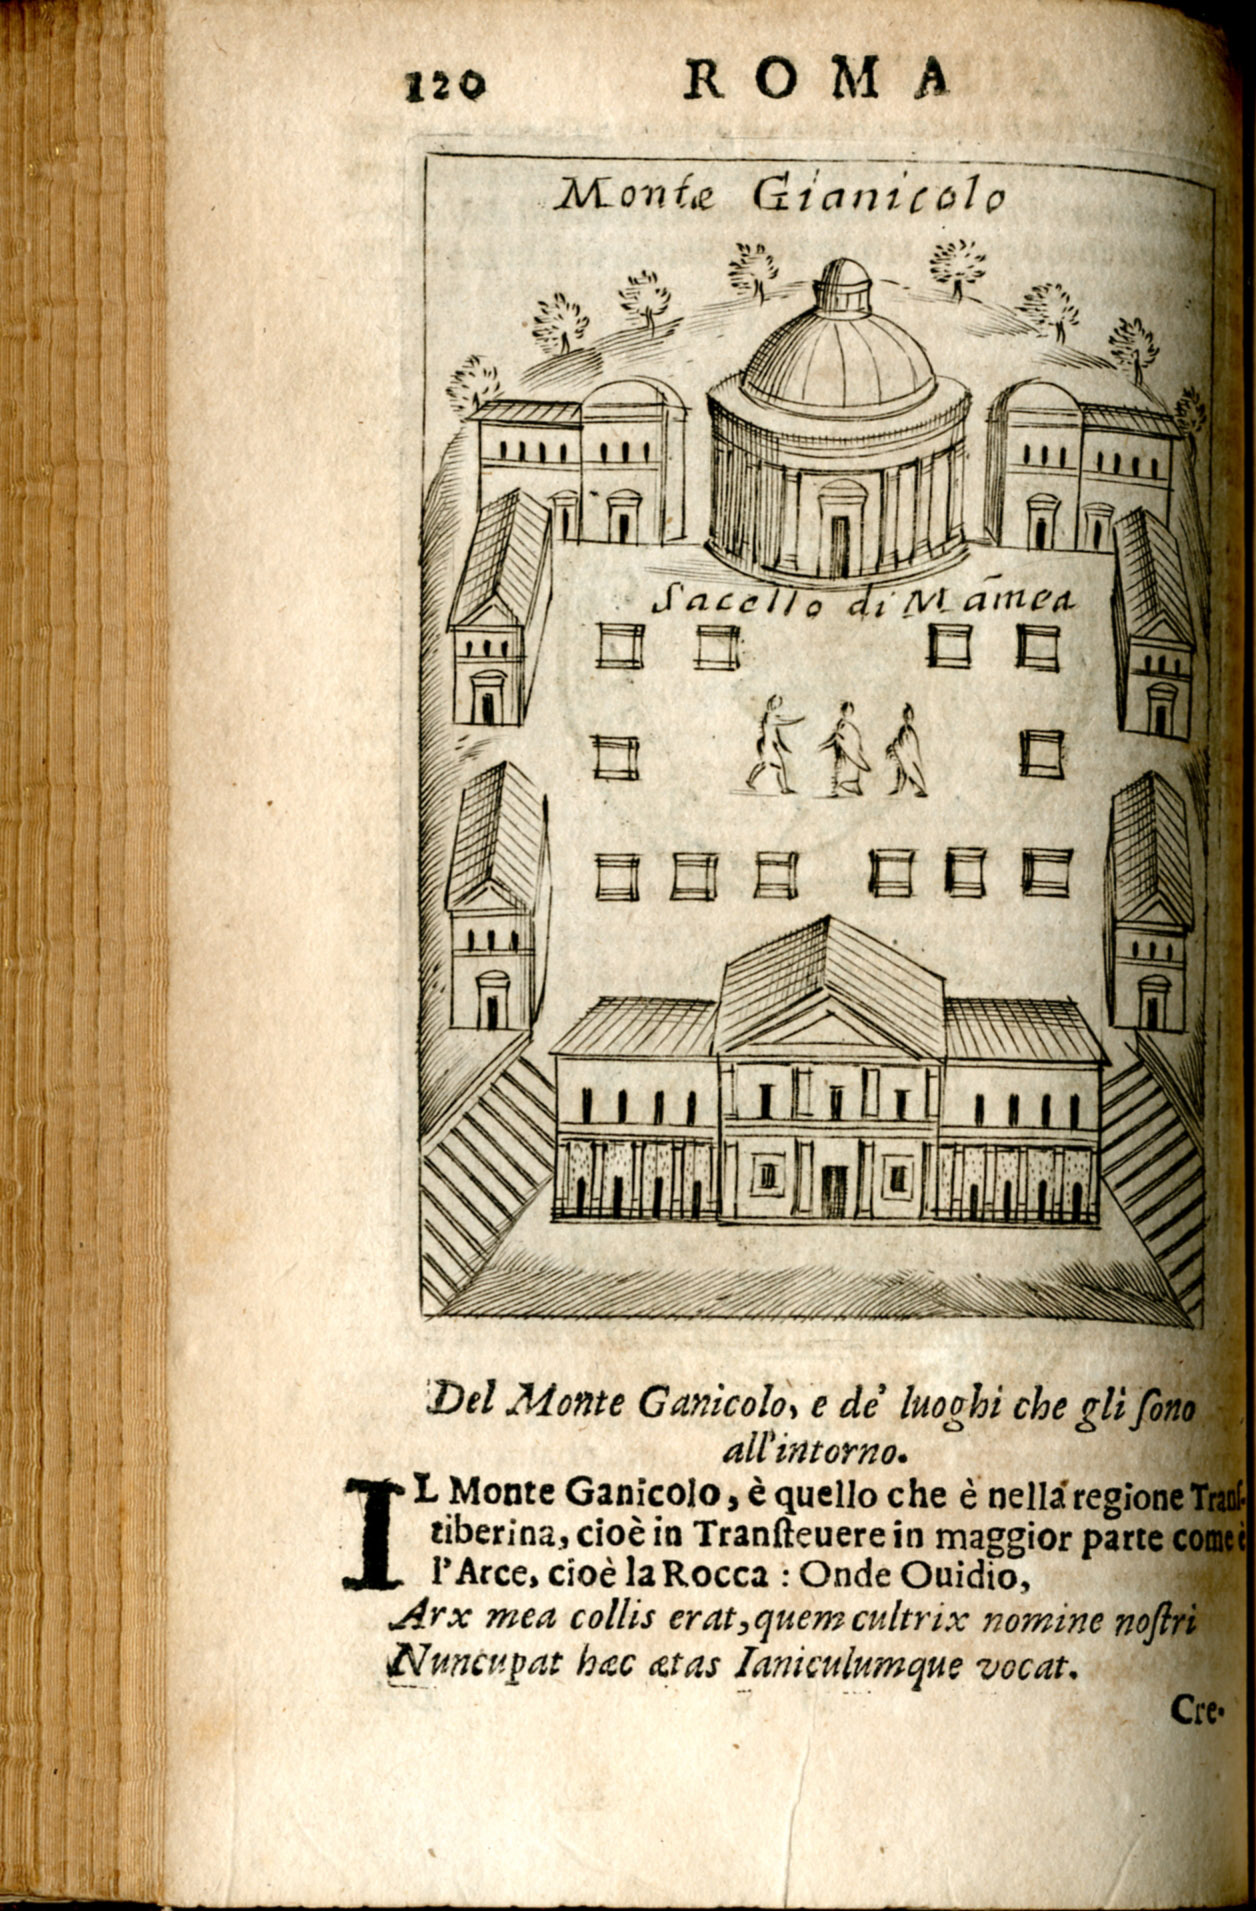 120 ROMA
Monte Gianicolo
Sacello di Māmea
Del Monte Ganicolo, e de' luoghi che gli ſono
all'intorno.
IL Monte Ganicolo, è quello che è nella regione Tranſ-
tiberina, cioè in Tranſteuere in maggior parte come è
l'Arce, cioè la Rocca : Onde Ouidio,
Arx mea collis erat, quem cultrix nomine noſtri
Nuncupat hæc ætas Ianiculumque vocat.
Cre-